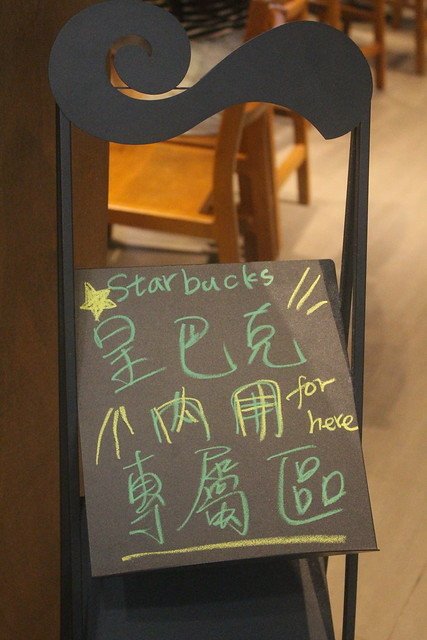 Starbucks
星巴克
內用 for here
專屬區